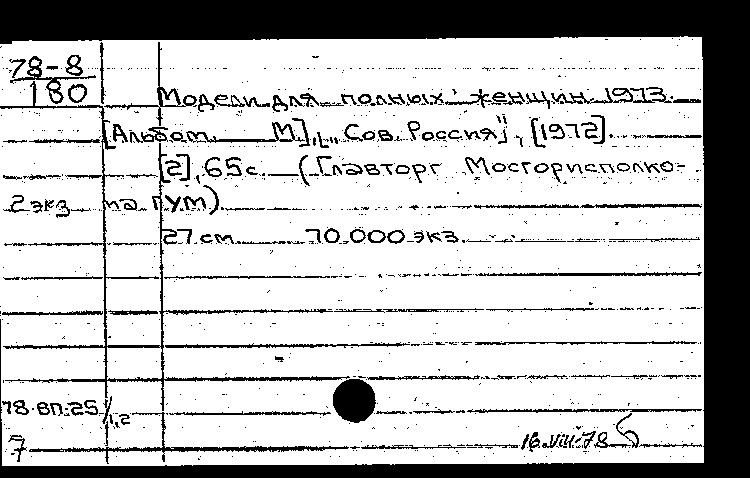 78-8
180
Модели для полных женщин 1973.
[Альбом. М], [„Сов. Россия"], [1972].
[2], 65 с. (Главторг Мосгорисполко-
2 экз ма ГУМ)
27 см. 70.000 экз.
78.ВП.25/1,2
7 16.VIII-78